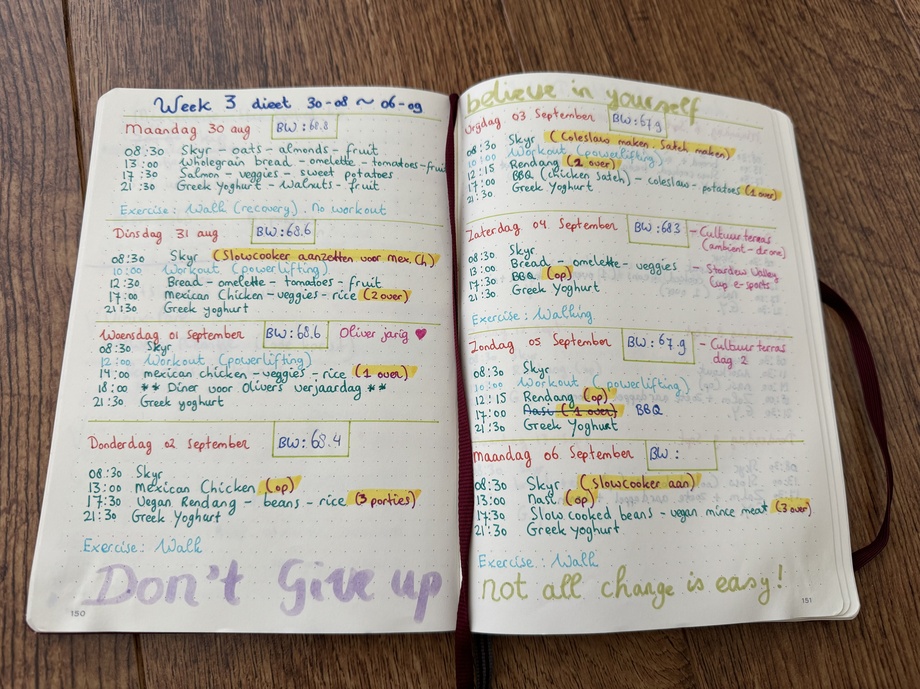 Week 3 dieet 30-08 ~ 06-09
Maandag 30 aug BW: 68.8
08:30 Skyr - oats - almonds - fruit
13:00 Wholegrain bread - omelette - tomatoes - fruit
17:30 Salmon - veggies - sweet potatoes
21:30 Greek Yoghurt - Walnuts - fruit
Exercise: Walk (recovery). No workout
Dinsdag 31 aug BW: 68.6
08:30 Skyr (Slowcooker aanzetten voor mex. Ch)
10:00 Workout (powerlifting)
12:30 Bread - omelette - tomatoes - fruit
17:00 Mexican Chicken - veggies - rice (2 over)
21:30 Greek yoghurt
Woensdag 01 September BW: 68.6 Oliver jarig ♥
08:30 Skyr
12:00 Workout (powerlifting)
14:00 mexican chicken - veggies - rice (1 over)
18:00 ** Diner voor Olivers verjaardag **
21:30 Greek yoghurt
Donderdag 02 September BW: 68.4
08:30 Skyr
13:00 Mexican Chicken (op)
17:30 Vegan Rendang - beans - rice (3 porties)
21:30 Greek Yoghurt
Exercise: Walk
Don't Give up
150
believe in yourself
Vrijdag 03 September BW: 67.9
08:30 Skyr (Coleslaw maken. Sateh maken)
10:00 Workout (powerlifting)
12:15 Rendang (2 over)
17:00 BBQ (chicken sateh) - coleslaw - potatoes (1 over)
21:30 Greek Yoghurt
Zaterdag 04 September BW: 68.3 - Cultuur terras
(ambient - drone)
08:30 Skyr
13:00 Bread - omelette - veggies - Stardew Valley
17:30 BBQ (op) Cup e-sports
21:30 Greek Yoghurt
Exercise: Walking
Zondag 05 September BW: 67.9 - Cultuur terras
dag 2
08:30 Skyr
10:00 Workout (powerlifting)
12:15 Rendang (op)
17:00 Nasi (1 over) BBQ
21:30 Greek Yoghurt
maandag 06 September BW:
08:30 Skyr (slowcooker aan)
13:00 Nasi (op)
17:30 Slow cooked beans - vegan mince meat (3 over)
21:30 Greek Yoghurt
Exercise: Walk
not all change is easy!
151